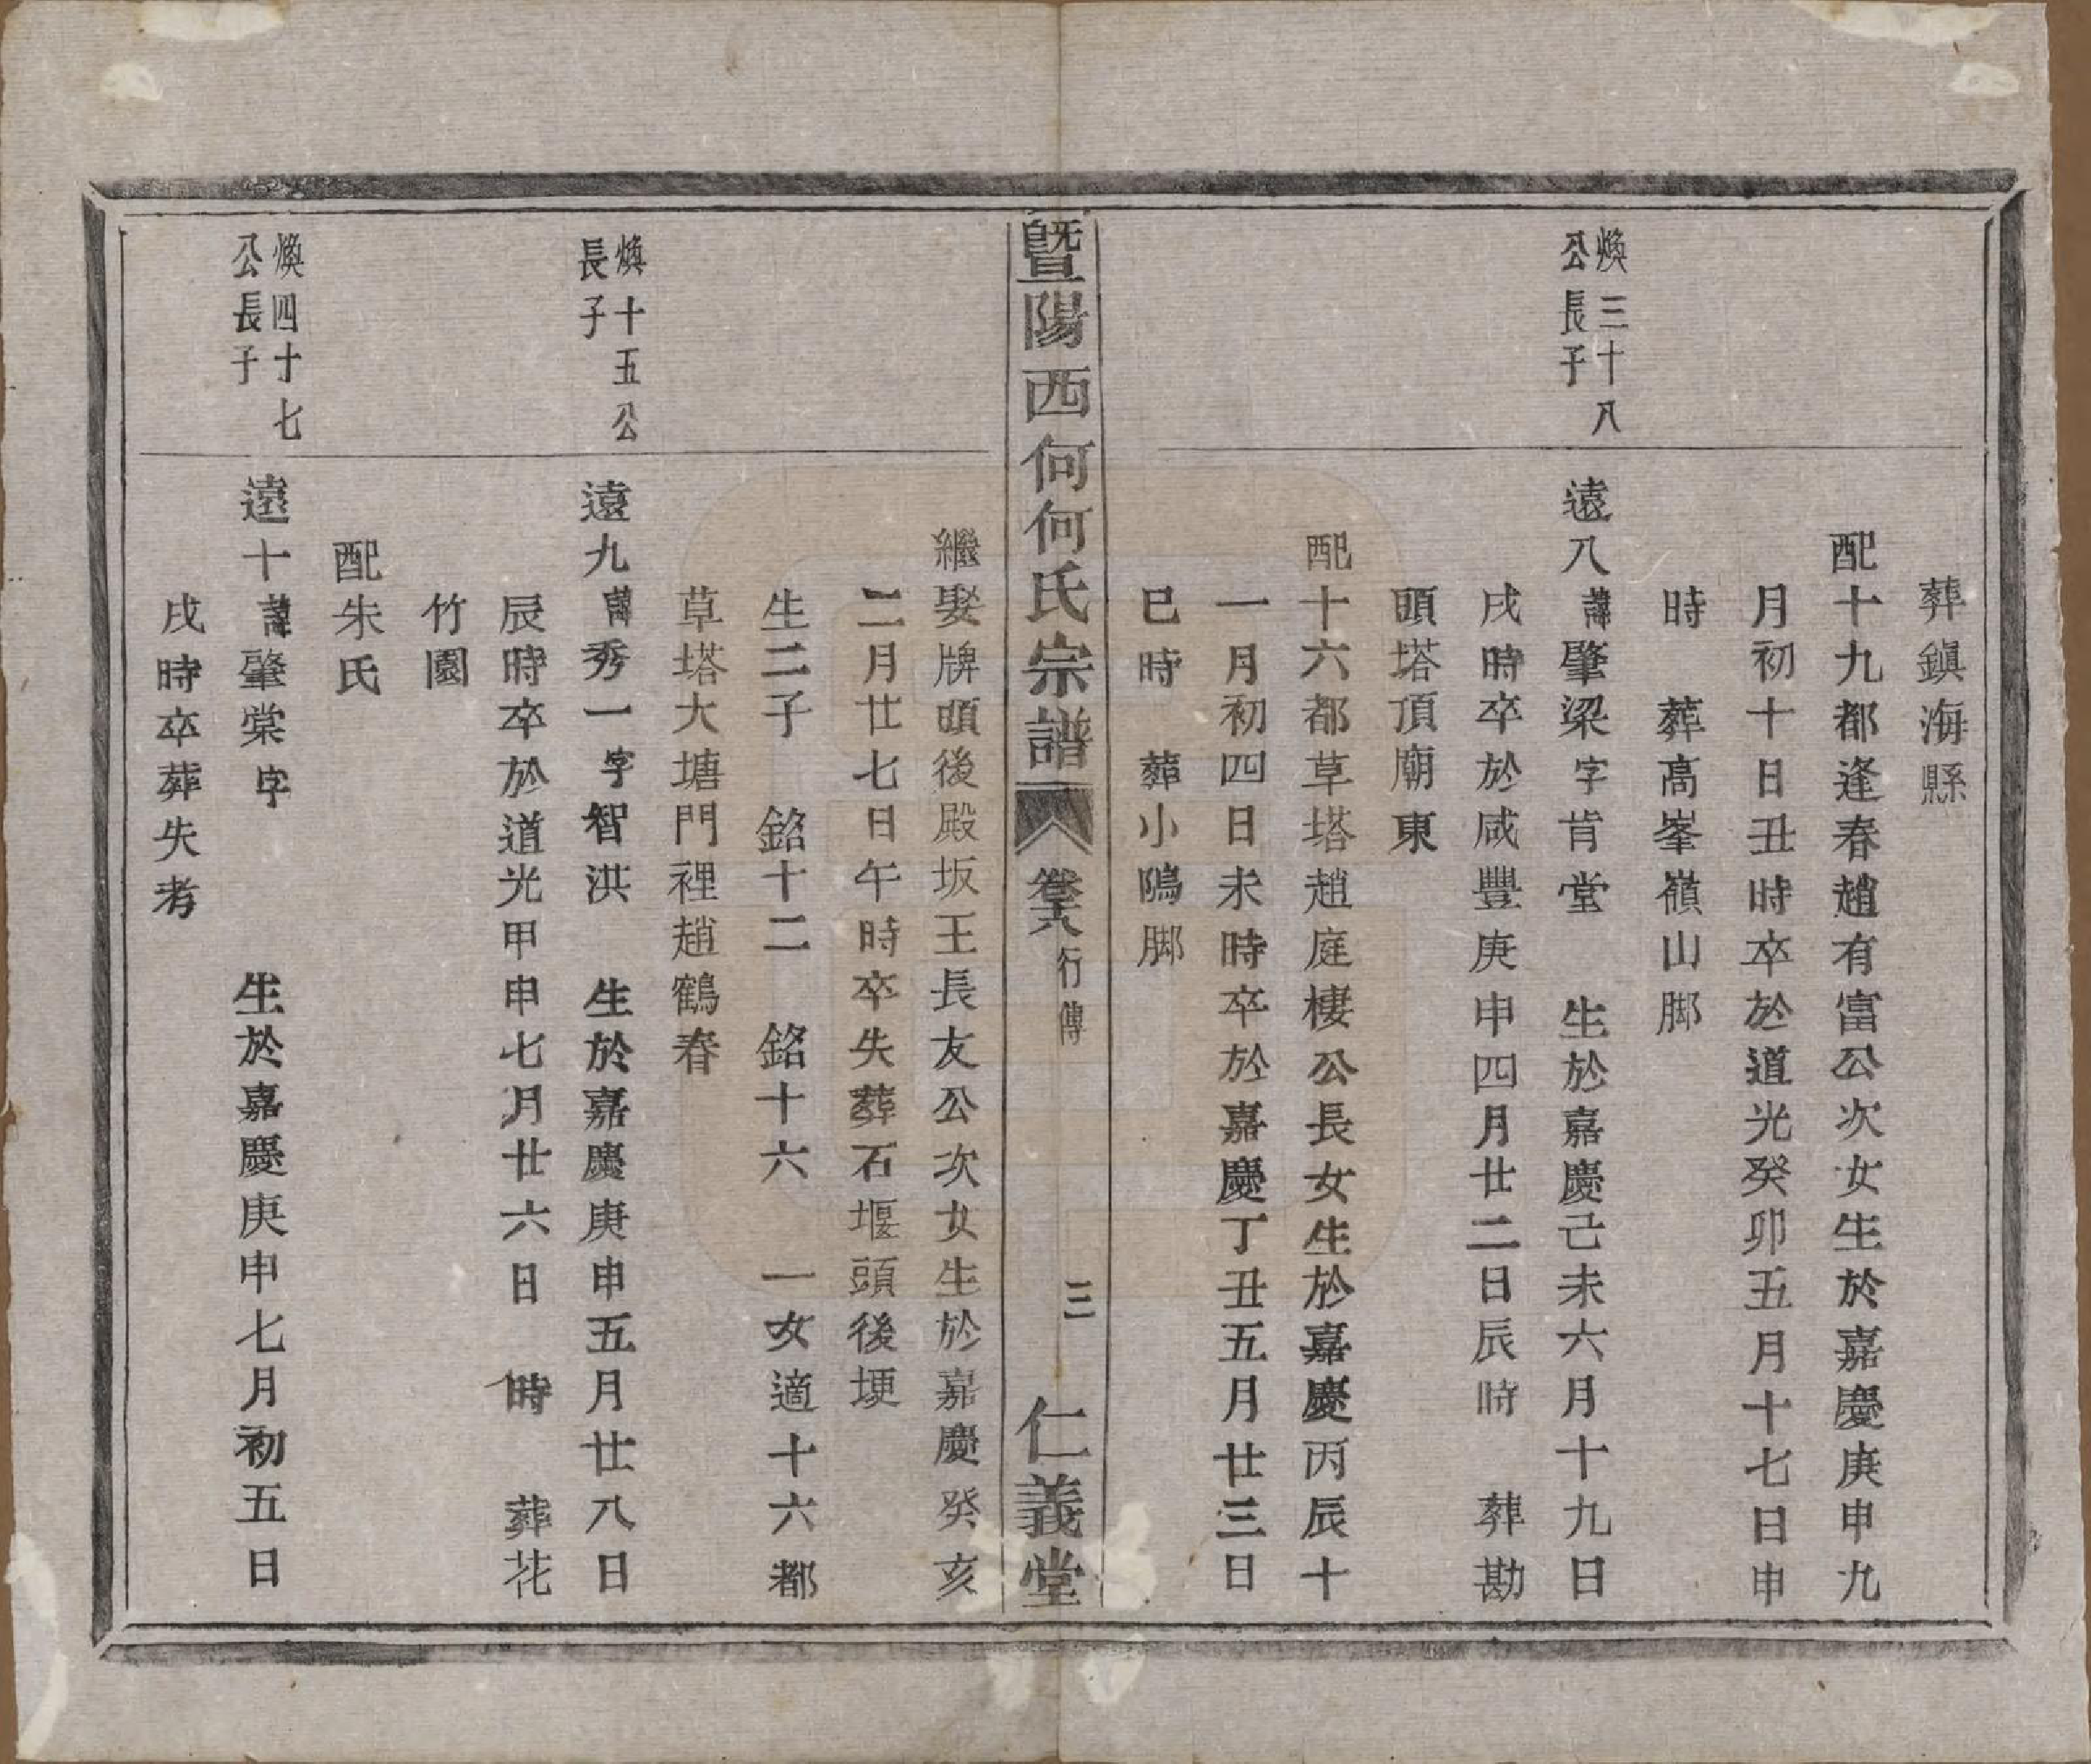 葬鎮海縣
配十九都逢春趙有富公次女生於嘉慶庚申九
月初十日丑時卒於道光癸卯五月十七日申
時　葬高峯嶺山脚
煥三十八
公長子
遠八諱肇梁字肯堂　生於嘉慶己未六月十九日
戌時卒於咸豐庚申四月廿二日辰時　葬勘
頭塔頂廟東
配十六都草塔趙庭棲公長女生於嘉慶丙辰十
一月初四日未時卒於嘉慶丁丑五月廿三日
巳時　葬小隖脚
暨陽西何何氏宗譜　卷六　行傳　三　仁義堂
繼娶牌頭後殿坂王長友公次女生於嘉慶癸亥
二月廿七日午時卒失葬石堰頭後埂
生二子　銘十二　銘十六　一女適十六都
草塔大塘門裡趙鶴春
煥十五公
長子
遠九諱秀一字智洪　生於嘉慶庚申五月廿八日
辰時卒於道光甲申七月廿六日　時　葬花
竹園
配朱氏
煥四十七
公長子
遠十諱肇棠字　生於嘉慶庚申七月初五日
戌時卒葬失考